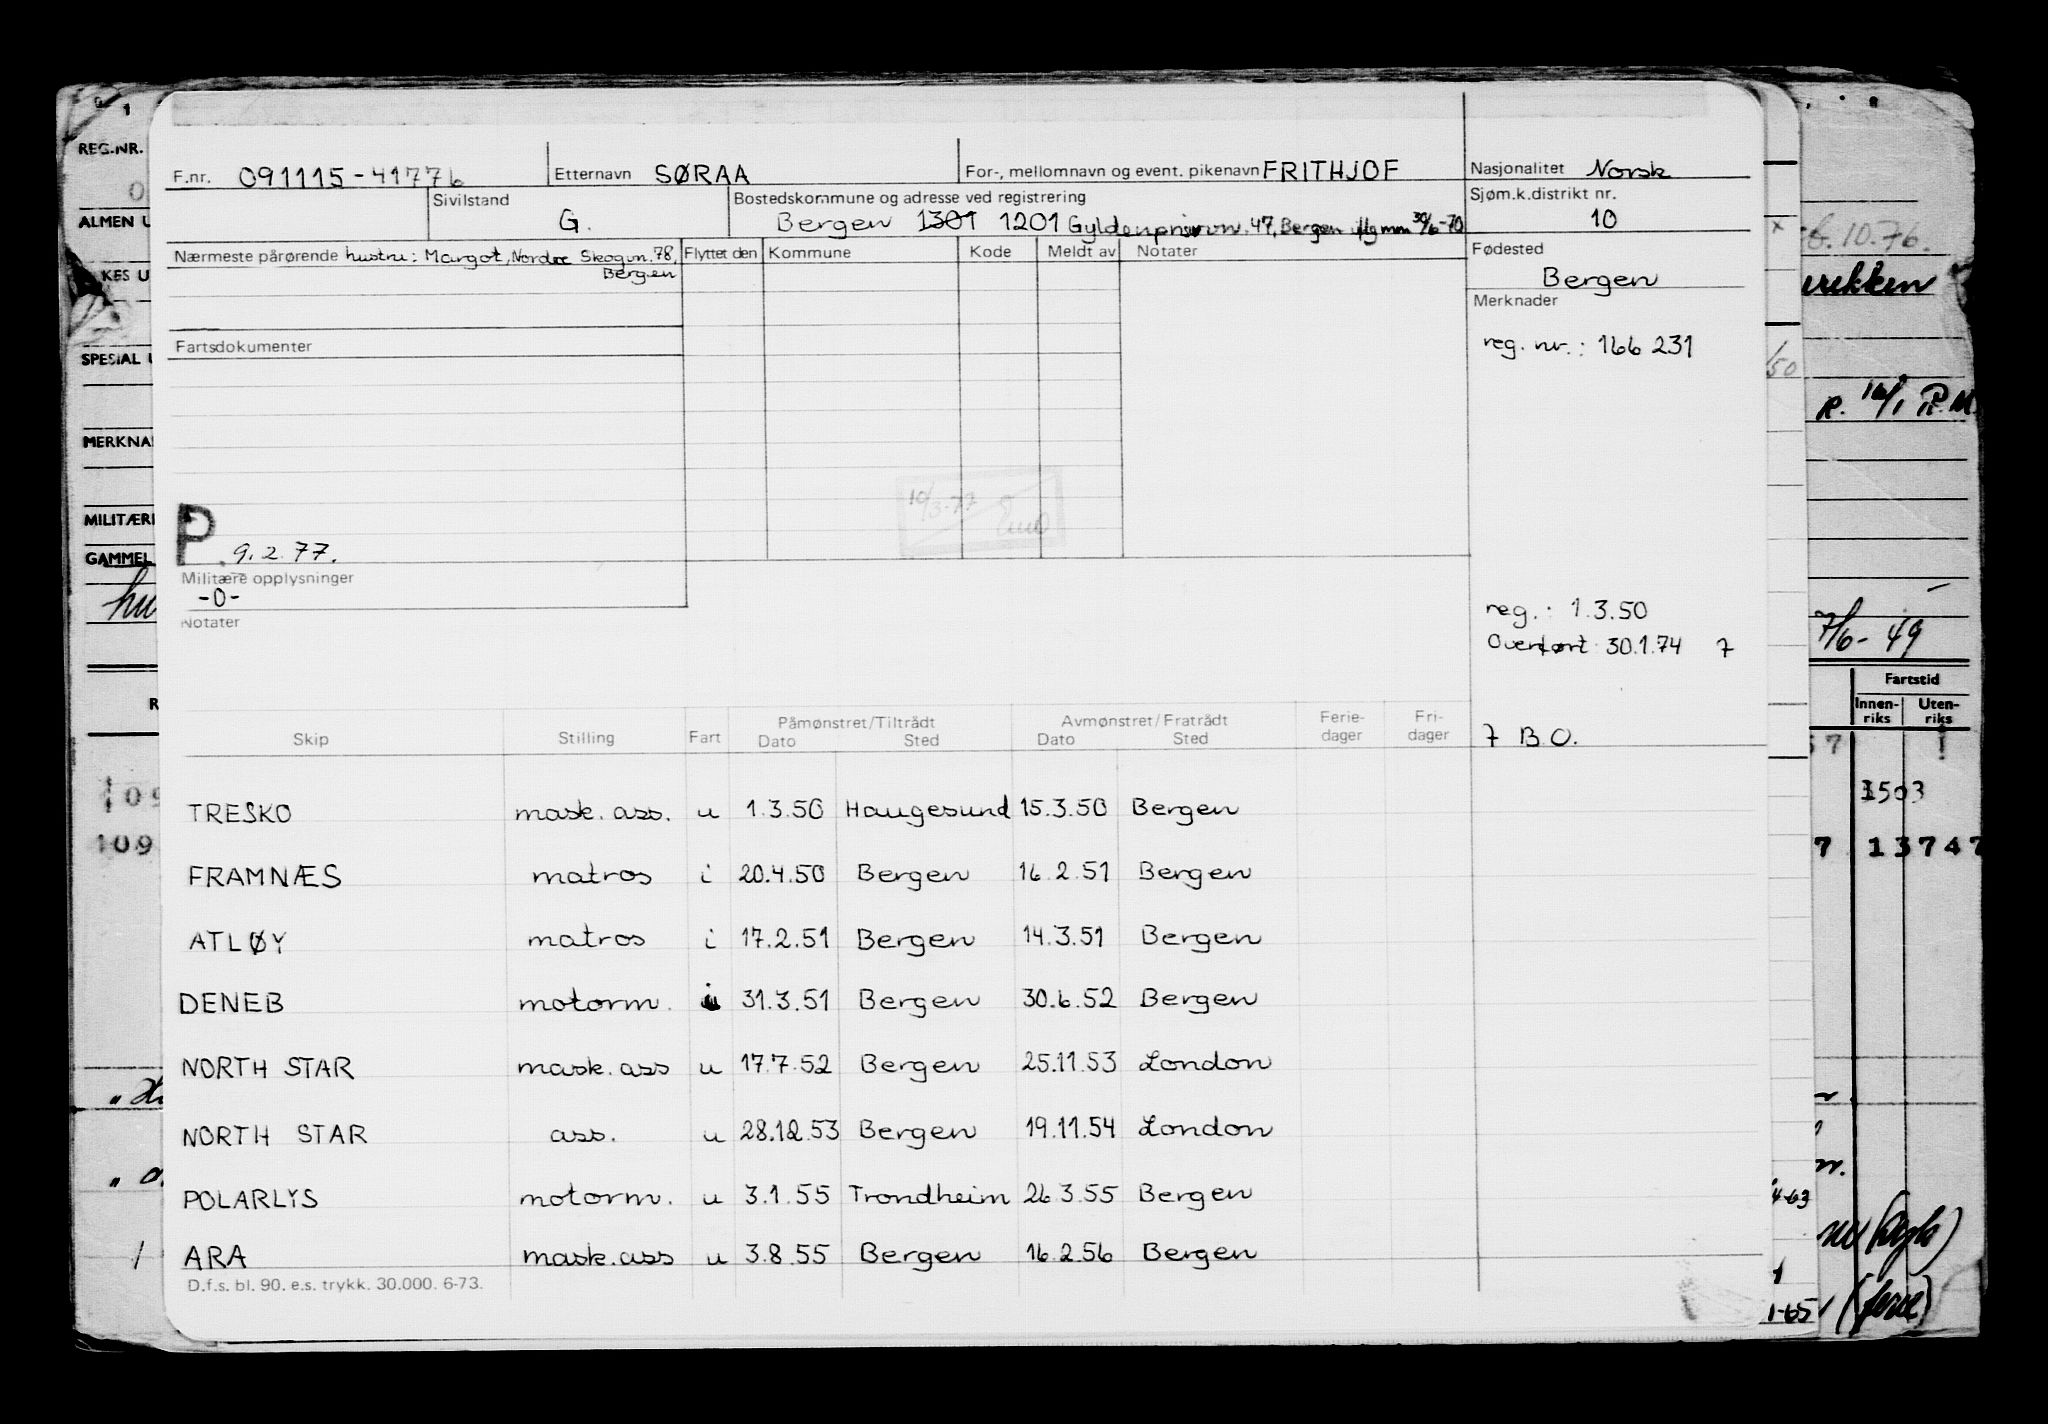 REG.NR.
F.nr. 091115-41776 Etternavn SØRAA For-, mellomnavn og event. pikenavn FRITHJOF Nasjonalitet Norsk
ALMEN U
Sivilstand G. Bostedskommune og adresse ved registrering Bergen 1301 1201 Gyldenprisvn. 47, Bergen iflg mm 30/6-70
Sjøm.k.distrikt nr. 10
Nærmeste pårørende hustru: Margot, Nordre Skogvn. 78, Bergen
Flyttet den Kommune Kode Meldt av Notater
Fødested
Bergen
Merknader
reg. nr.: 166 231
Fartsdokumenter
SPESIAL U
MERKNA
MILITÆRE
GAMMEL
P 9.2.77.
10/3-77
Militære opplysninger
-0-
Notater
reg.: 1.3.50
Overført: 30.1.74 7
7 B.O.
Skip Stilling Fart Påmønstret/Tiltrådt Dato Sted Avmønstret/Fratrådt Dato Sted Ferie-dager Fri-dager
TRESKO mask. ass. u 1.3.50 Haugesund 15.3.50 Bergen
FRAMNÆS matros i 20.4.50 Bergen 16.2.51 Bergen
ATLØY matros i 17.2.51 Bergen 14.3.51 Bergen
DENEB motorm. i 31.3.51 Bergen 30.6.52 Bergen
NORTH STAR mask. ass u 17.7.52 Bergen 25.11.53 London
NORTH STAR ass. u 28.12.53 Bergen 19.11.54 London
POLARLYS motorm. u 3.1.55 Trondheim 26.3.55 Bergen
ARA mask. ass u 3.8.55 Bergen 16.2.56 Bergen
D.f.s. bl. 90. e.s. trykk. 30.000. 6-73.
10.76.
7/6-49
Fartstid
Innen-riks Uten-riks
1503
7 13747
4-63
1-65